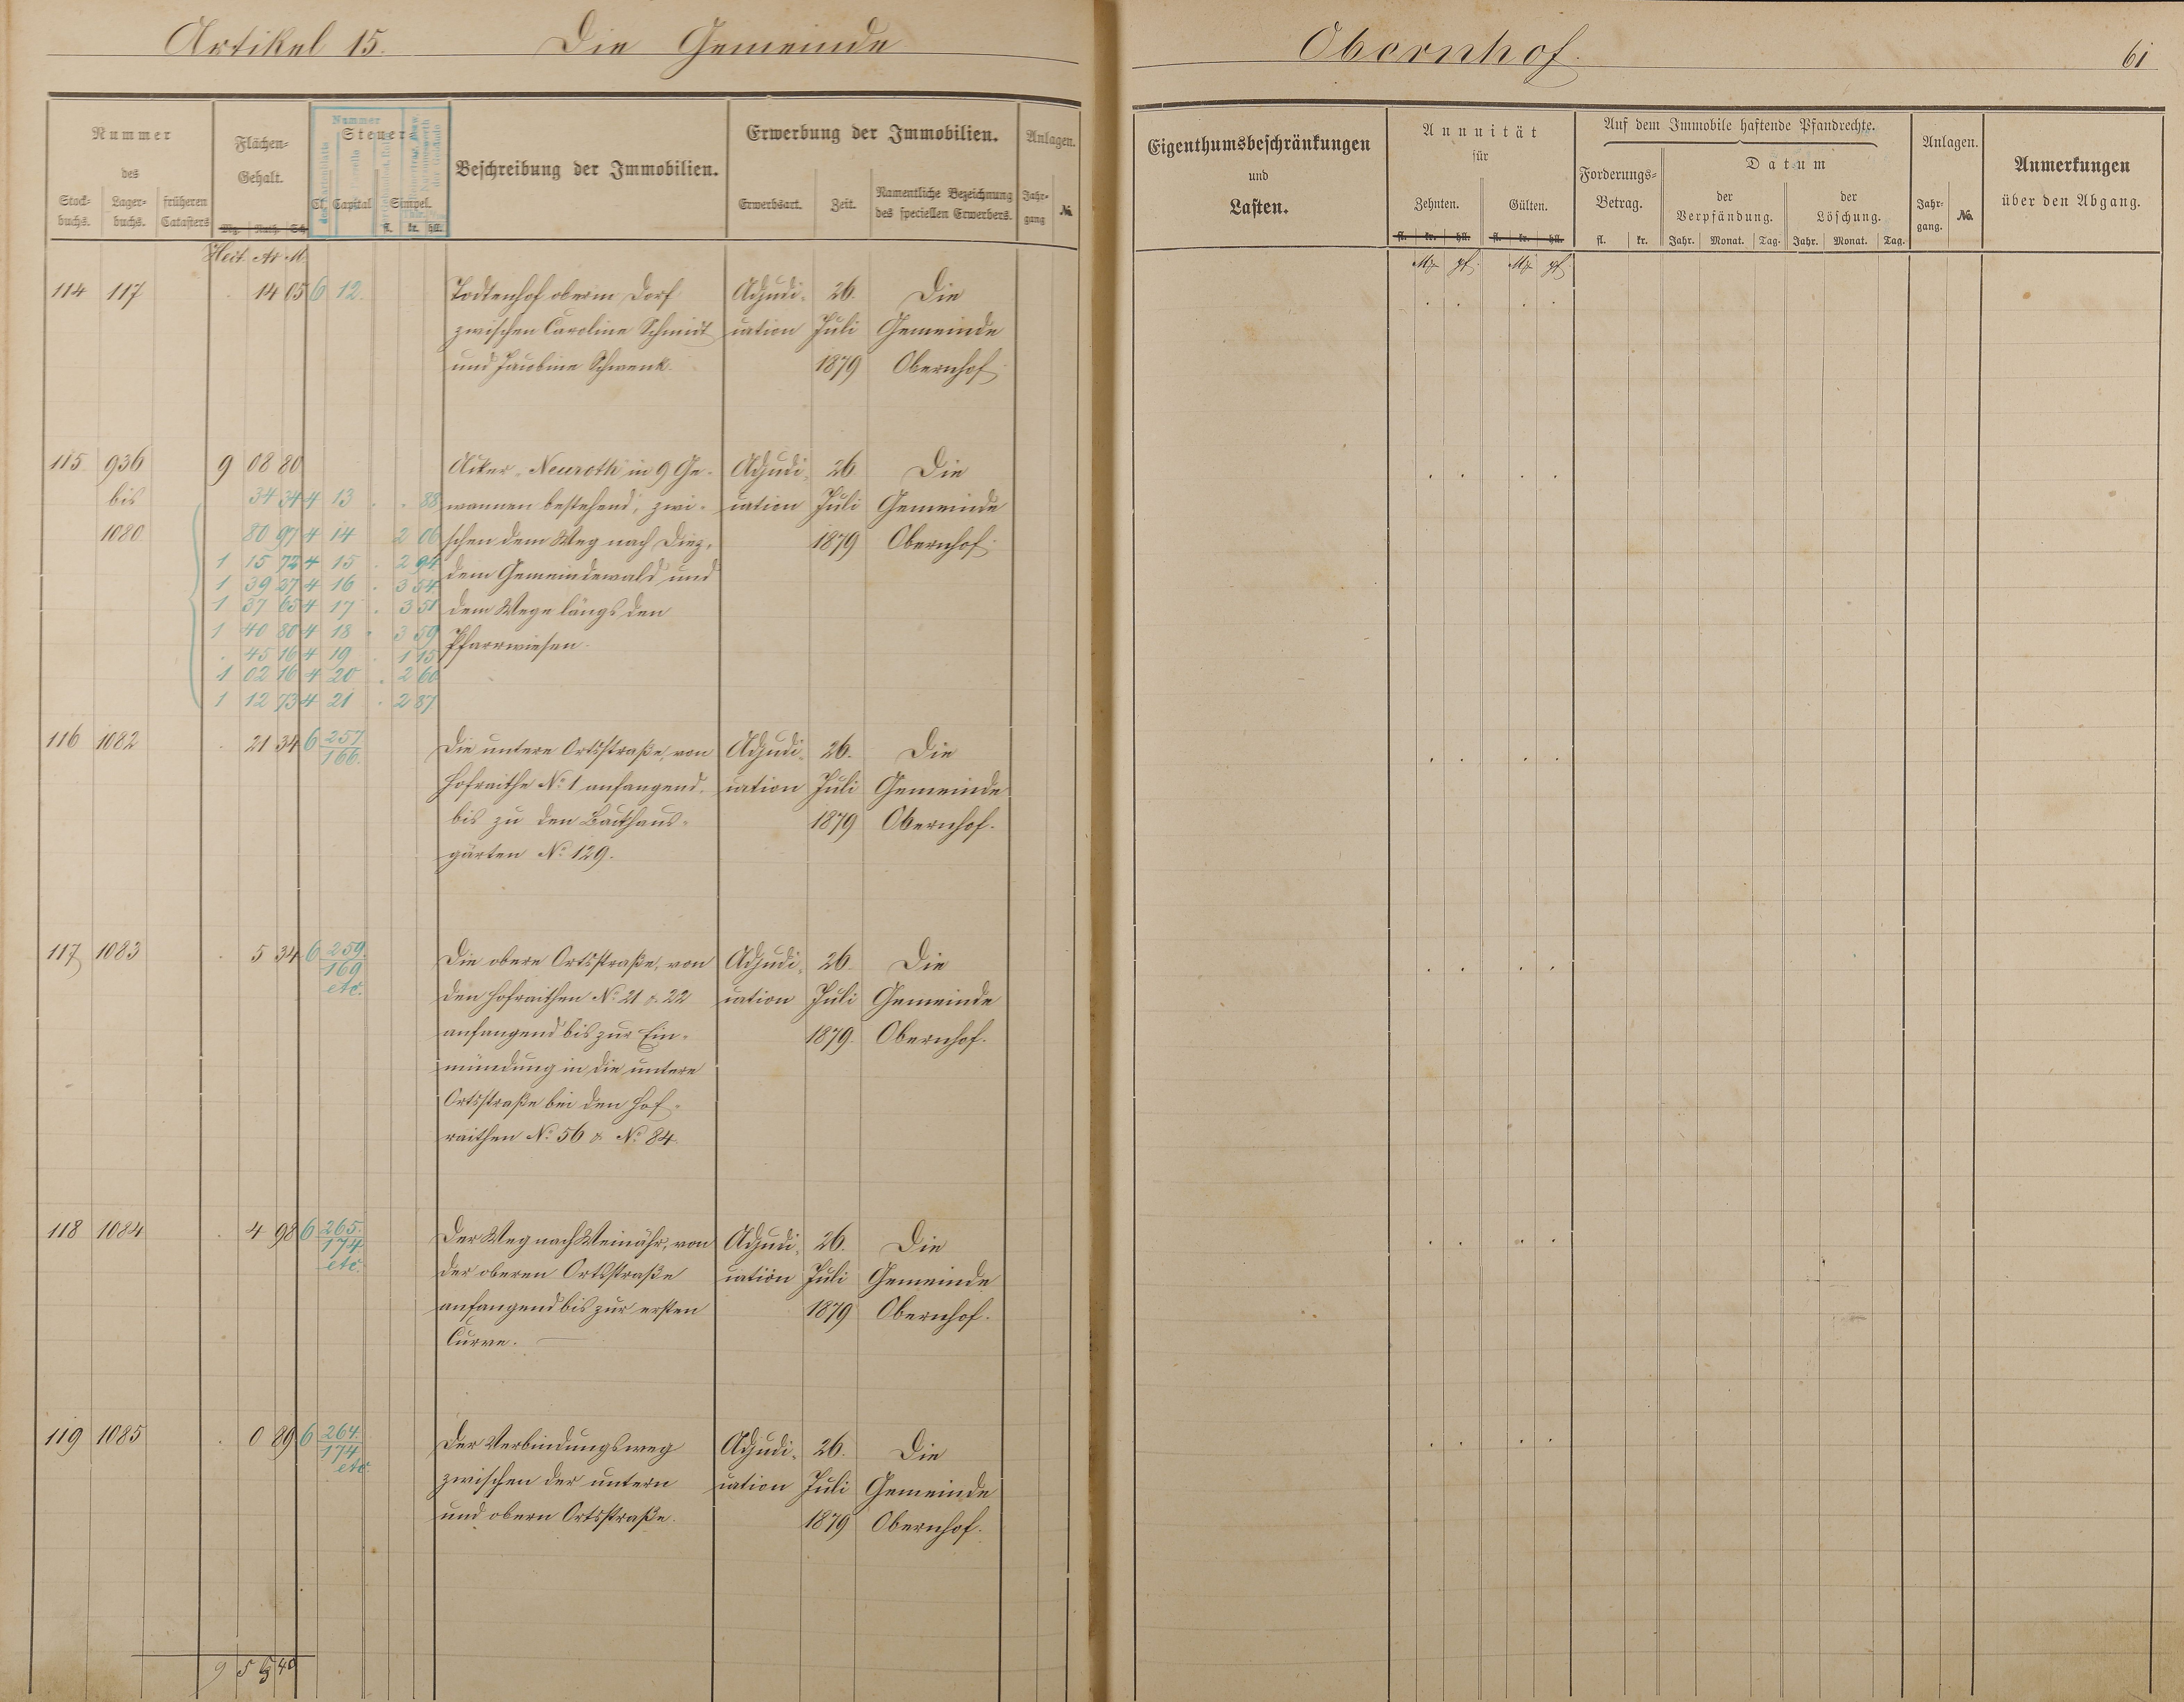 Artikel 15. Die Gemeinde Obernhof. 61
Nummer des
Stock-buchs. Lager-buchs. früheren Catasters
Flächen-Gehalt.
Mg. Ruth. Sch.
Hect. Ar M.
Nummer
Steuer-
Cl. Capital Simpel.
fl. kr. hll.
Beschreibung der Immobilien.
Erwerbung der Immobilien.
Erwerbsart. Zeit. Namentliche Bezeichnung des speciellen Erwerbers.
Anlagen.
Jahr-gang №
Eigenthumsbeschränkungen
und
Lasten.
Annuität
für
Zehnten. Gülten.
fl. kr. hll. fl. kr. hll.
Mk pf. Mk pf.
Auf dem Immobile haftende Pfandrechte.
Forderungs-Betrag.
fl. kr.
Datum
der Verpfändung. der Löschung.
Jahr. Monat. Tag. Jahr. Monat. Tag.
Anlagen.
Jahr-gang. №.
Anmerkungen
über den Abgang.
114 117 . 14 05 6 12. Todtenhof oberm Dorf Adjudi- 26. Die
zwischen Caroline Schmidt cation Juli Gemeinde
und Jacobine Schwenk. 1879 Obernhof.
115 936 9 08 80 Acker "Neuroth" in 9 Ge- Adjudi- 26 Die
bis 34 34 4 13 . . 88 wannen bestehend, zwi- cation Juli Gemeinde
1080. 80 97 4 14 2 06 schen dem Weg nach Diez, 1879 Obernhof.
1 15 72 4 15 . 2 94 dem Gemeindewald und
1 39 27 4 16 . 3 54
1 37 65 4 17 . 3 51 dem Wege längs den
1 40 80 4 18 . 3 59 Pfarrwiesen.
. 45 16 4 19 . 1 15
1 02 16 4 20 . 2 60
1 12 73 4 21 . 2 87
116 1082 . 21 34 6 257/166. Die untere Ortsstraße, von Adjudi- 26. Die
Hofraithe No. 1 anfangend, cation Juli Gemeinde
bis zu den Backhaus- 1879 Obernhof.
gärten No. 129.
117 1083 . 5 34 6 259./169 etc. Die obere Ortsstraße, von Adjudi- 26. Die
den Hofraithen No. 21 & 22 cation Juli Gemeinde
anfangend bis zur Ein- 1879. Obernhof.
mündung in die untere
Ortsstraße bei den Hof-
raithen No. 56 & No. 84.
118 1084 . 4 98 6 265./174 etc. Der Weg nach Weinähr, von Adjudi- 26. Die
der oberen Ortsstraße cation Juli Gemeinde
anfangend bis zur ersten 1879 Obernhof.
Curve.
119 1085 . 0 89 6 264./174 etc. Der Verbindungsweg Adjudi- 26. Die
zwischen der untern cation Juli Gemeinde
und obern Ortsstraße. 1879 Obernhof.